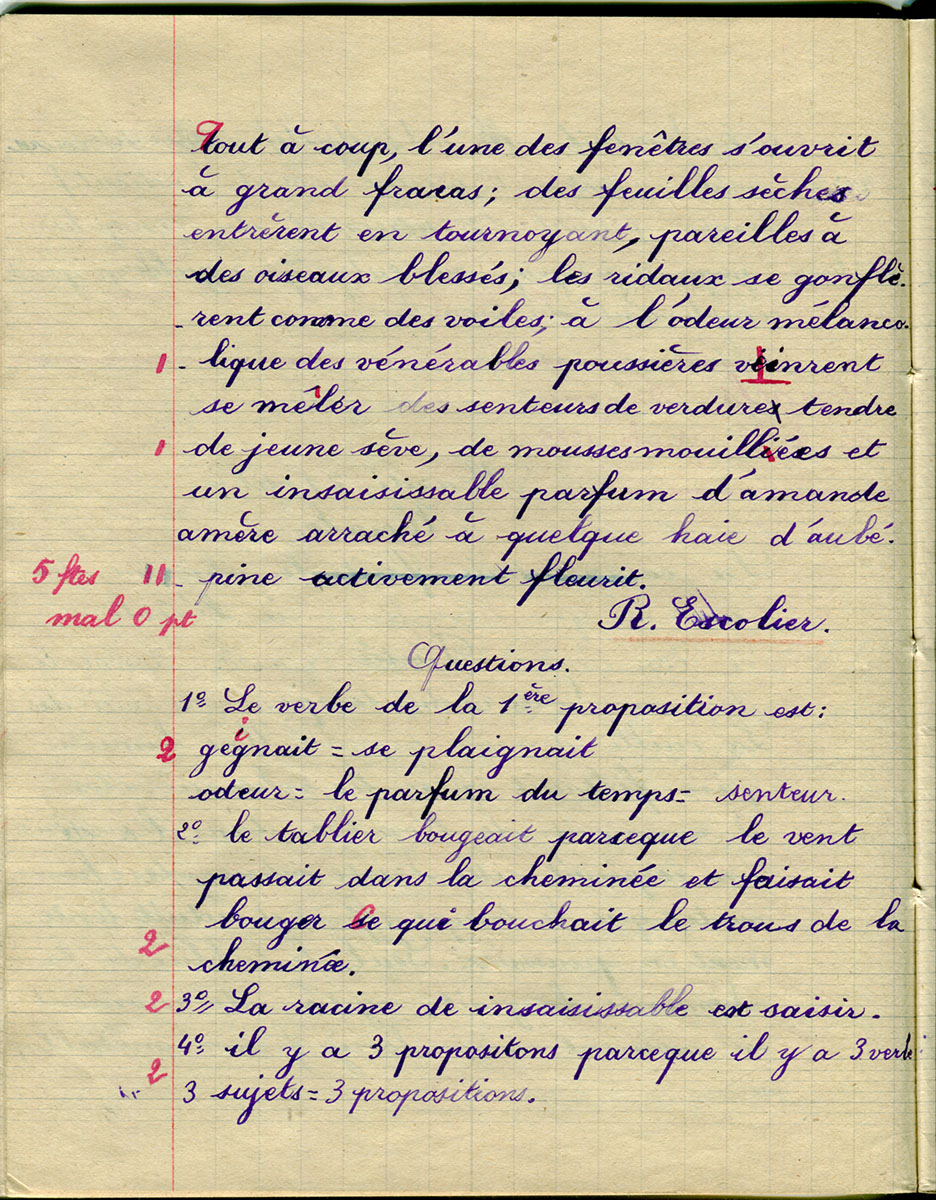 Tout à coup, l'une des fenêtres s'ouvrit
à grand fracas; des feuilles sèches
entrèrent en tournoyant, pareilles à
des oiseaux blessés; les ridaux se gonflè-
- rent comme des voiles; à l'odeur mélanco-
1 - lique des vénérables poussières vinrent
se mêler des senteurs de verdure tendre
1 de jeune sève, de mousses mouillées et
un insaisissable parfum d'amande
amère arraché à quelque haie d'aubé-
5 ftes 11 - pine activement fleurit.
mal 0 pt R. Escolier.
Questions.
1º Le verbe de la 1ère proposition est:
2 geignait = se plaignait
odeur = le parfum du temps = senteur.
2º le tablier bougeait parceque le vent
passait dans la cheminée et faisait
bouger ce qui bouchait le trous de la
2 cheminée.
2 3º La racine de insaisissable est saisir.
4º il y a 3 propositons parceque il y a 3 verbe
2 3 sujets = 3 propositions.